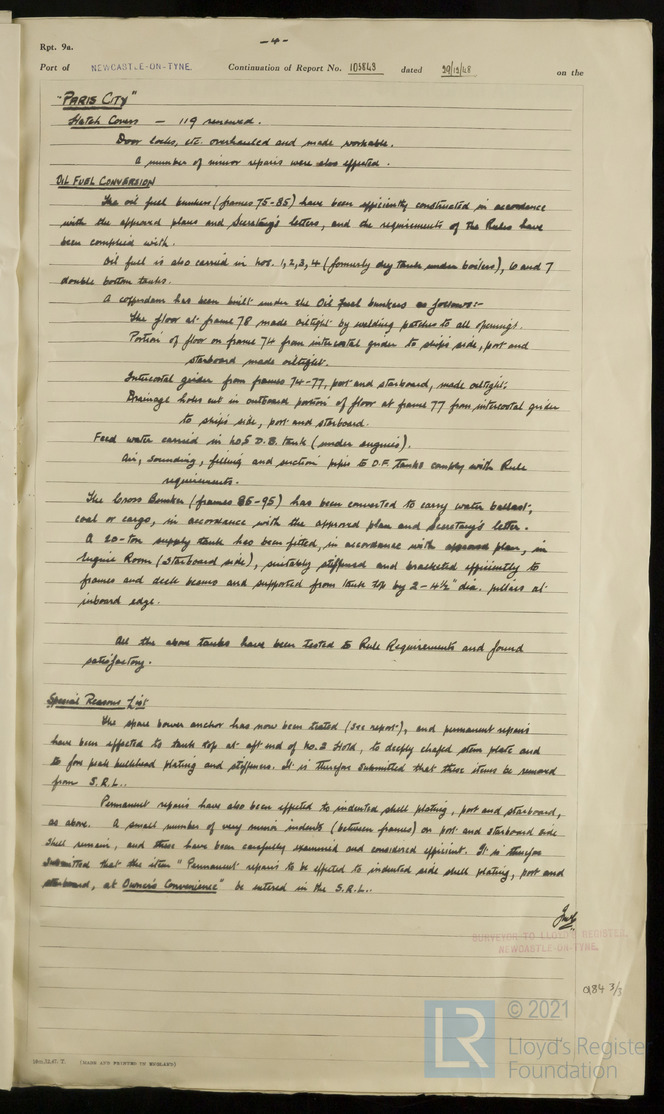 Rpt. 9a.
- 4 -
Port of NEWCASTLE-ON-TYNE. Continuation of Report No. 103843 dated 29/12/48 on the
"PARIS CITY"
Hatch Covers — 119 renewed.
Door locks, etc. overhauled and made workable.
A number of minor repairs were also effected.
OIL FUEL CONVERSION
The oil fuel bunkers (frames 75-85) have been efficiently constructed in accordance
with the approved plans and Secretary's letters, and the requirements of the Rules have
been complied with.
Oil fuel is also carried in nos. 1, 2, 3, 4 (formerly dry tank under boilers), 6 and 7
double bottom tanks.
A cofferdam has been built under the Oil Fuel bunkers as follows:-
The floor at frame 78 made oiltight by welding patches to all openings.
Portion of floor on frame 74 from intercostal girder to ship's side, port and
starboard made oiltight.
Intercostal girder from frames 74-77, port and starboard, made oiltight.
Drainage holes cut in outboard portion of floor at frame 77 from intercostal girder
to ship's side, port and starboard.
Feed water carried in No5 D.B. tank (under engines).
Air, sounding, filling and suction pipes to O.F. tanks comply with Rule
requirements.
The Cross Bunker (frames 85-95) has been converted to carry water ballast,
coal or cargo, in accordance with the approved plan and Secretary's letter.
A 20-ton supply tank has been fitted, in accordance with approved plan, in
Engine Room (Starboard side), suitably stiffened and bracketed efficiently to
frames and deck beams and supported from tank top by 2 - 4½" dia. pillars at
inboard edge.
All the above tanks have been tested to Rule Requirements and found
satisfactory.
Special Reasons List
The spare bower anchor has now been tested (see report), and permanent repairs
have been effected to tank top at aft end of No.2 Hold, to deeply chafed stem plate and
to fore peak bulkhead plating and stiffeners. It is therefore submitted that these items be removed
from S.R.L..
Permanent repairs have also been effected to indented shell plating, port and starboard,
as above. A small number of very minor indents (between frames) on port and starboard side
shell remain, and these have been carefully examined and considered efficient. It is therefore
submitted that the item "Permanent repairs to be effected to indented side shell plating, port and
starboard, at Owner's Convenience" be entered in the S.R.L..
SURVEYOR TO LLOYD'S REGISTER,
NEWCASTLE-ON-TYNE.
0184 3/3
(MADE AND PRINTED IN ENGLAND)
© 2021
LR
Lloyd's Register
Foundation